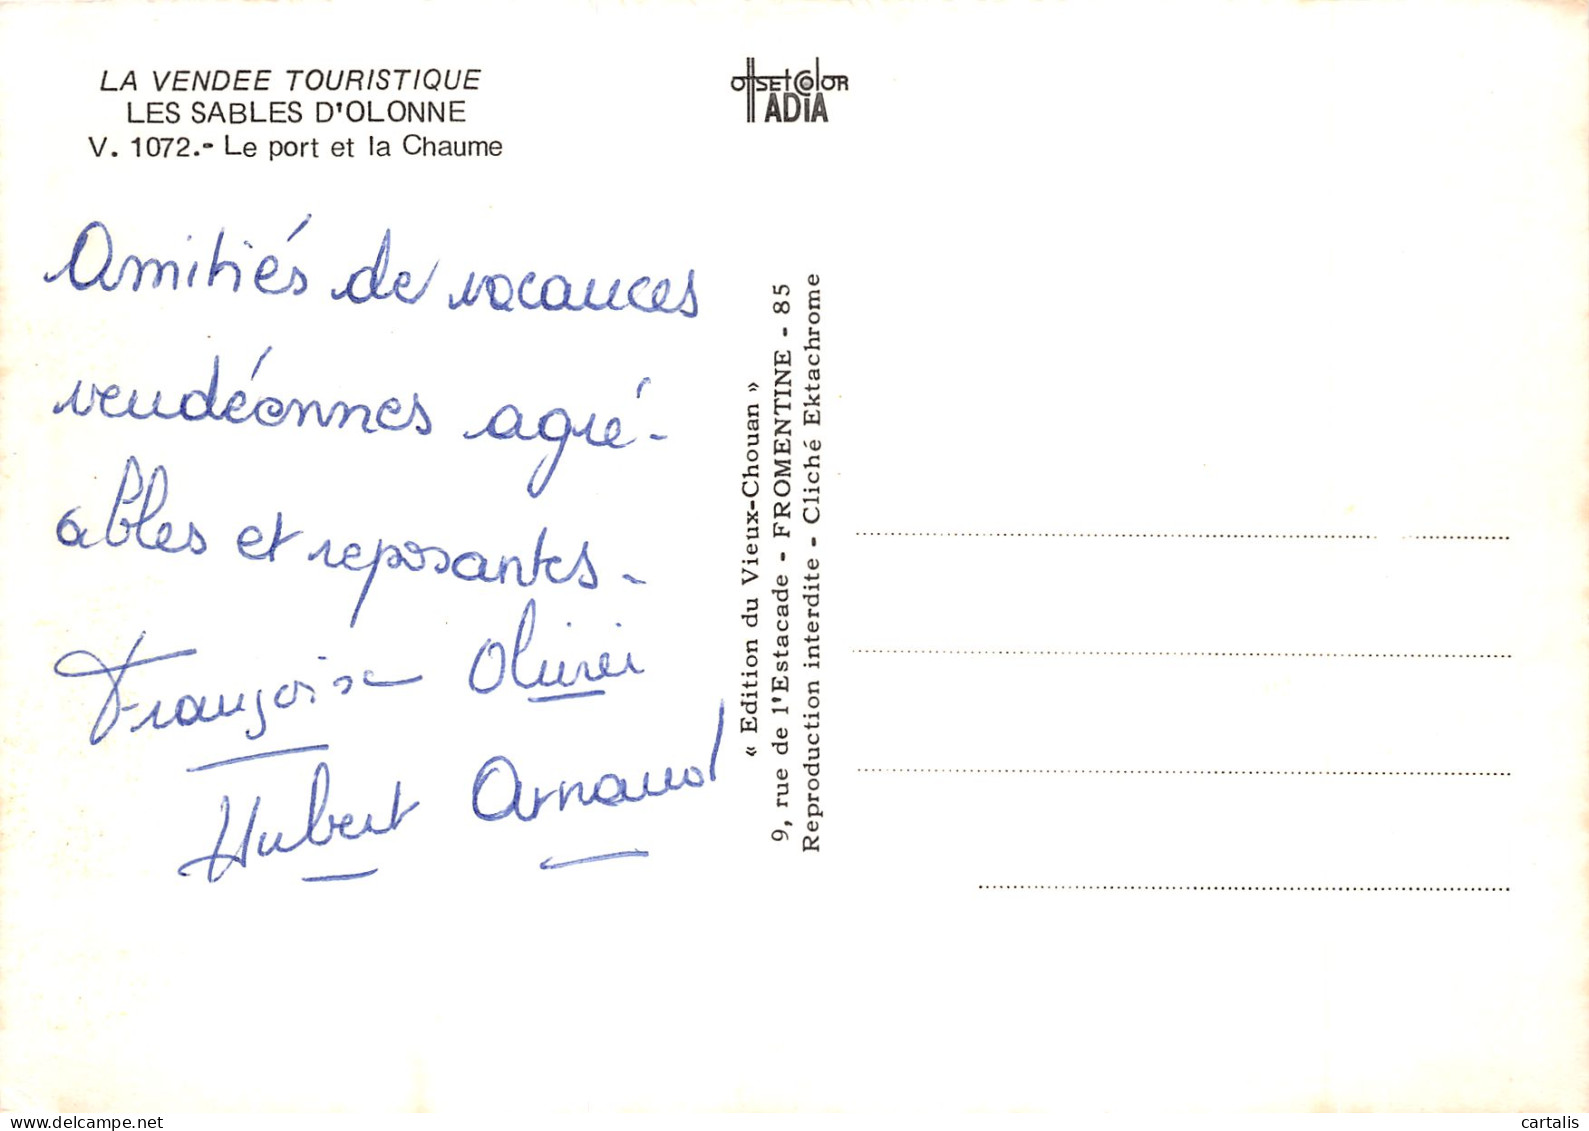 LA VENDEE TOURISTIQUE
LES SABLES D'OLONNE
V. 1072.- Le port et la Chaume
offsetcolor
ADIA
Amitiés de vacances
vendéennes agré-
ables et reposantes -
Françoise Olivier
Hubert Arnaud
« Edition du Vieux-Chouan »
9, rue de l'Estacade - FROMENTINE - 85
Reproduction interdite - Cliché Ektachrome
delcampe.net
cartalis